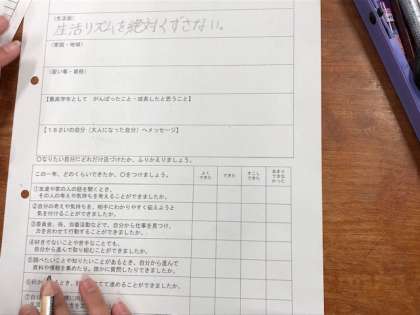 (生活面)
生活リズムを絶対くずさない。
(家庭・地域)
(習い事・資格)
【最高学年として がんばったこと・成長したと思うこと】
【１８さいの自分（大人になった自分）へメッセージ】
○なりたい自分にどれだけ近づけたか、ふりかえりましょう。
この一年、どのくらいできたか、○をつけましょう。
よく
できた
できた
すこし
できた
あまり
できな
かった
①友達や家の人の話を聞くとき、
その人の考えや気持ちを考えることができましたか。
②自分の考えや気持ちを、相手にわかりやすく伝えようと
気を付けることができましたか。
③委員会、係、当番活動などで、自分から仕事を見つけ、
力を合わせて行動することができましたか。
④好きでないことや苦手なことでも、
自分から進んで取り組むことができましたか。
⑤調べたいことや知りたいことがあるとき、自分から進んで
資料や情報を集めたり、誰かに質問したりできましたか。
てて進めることができましたか。